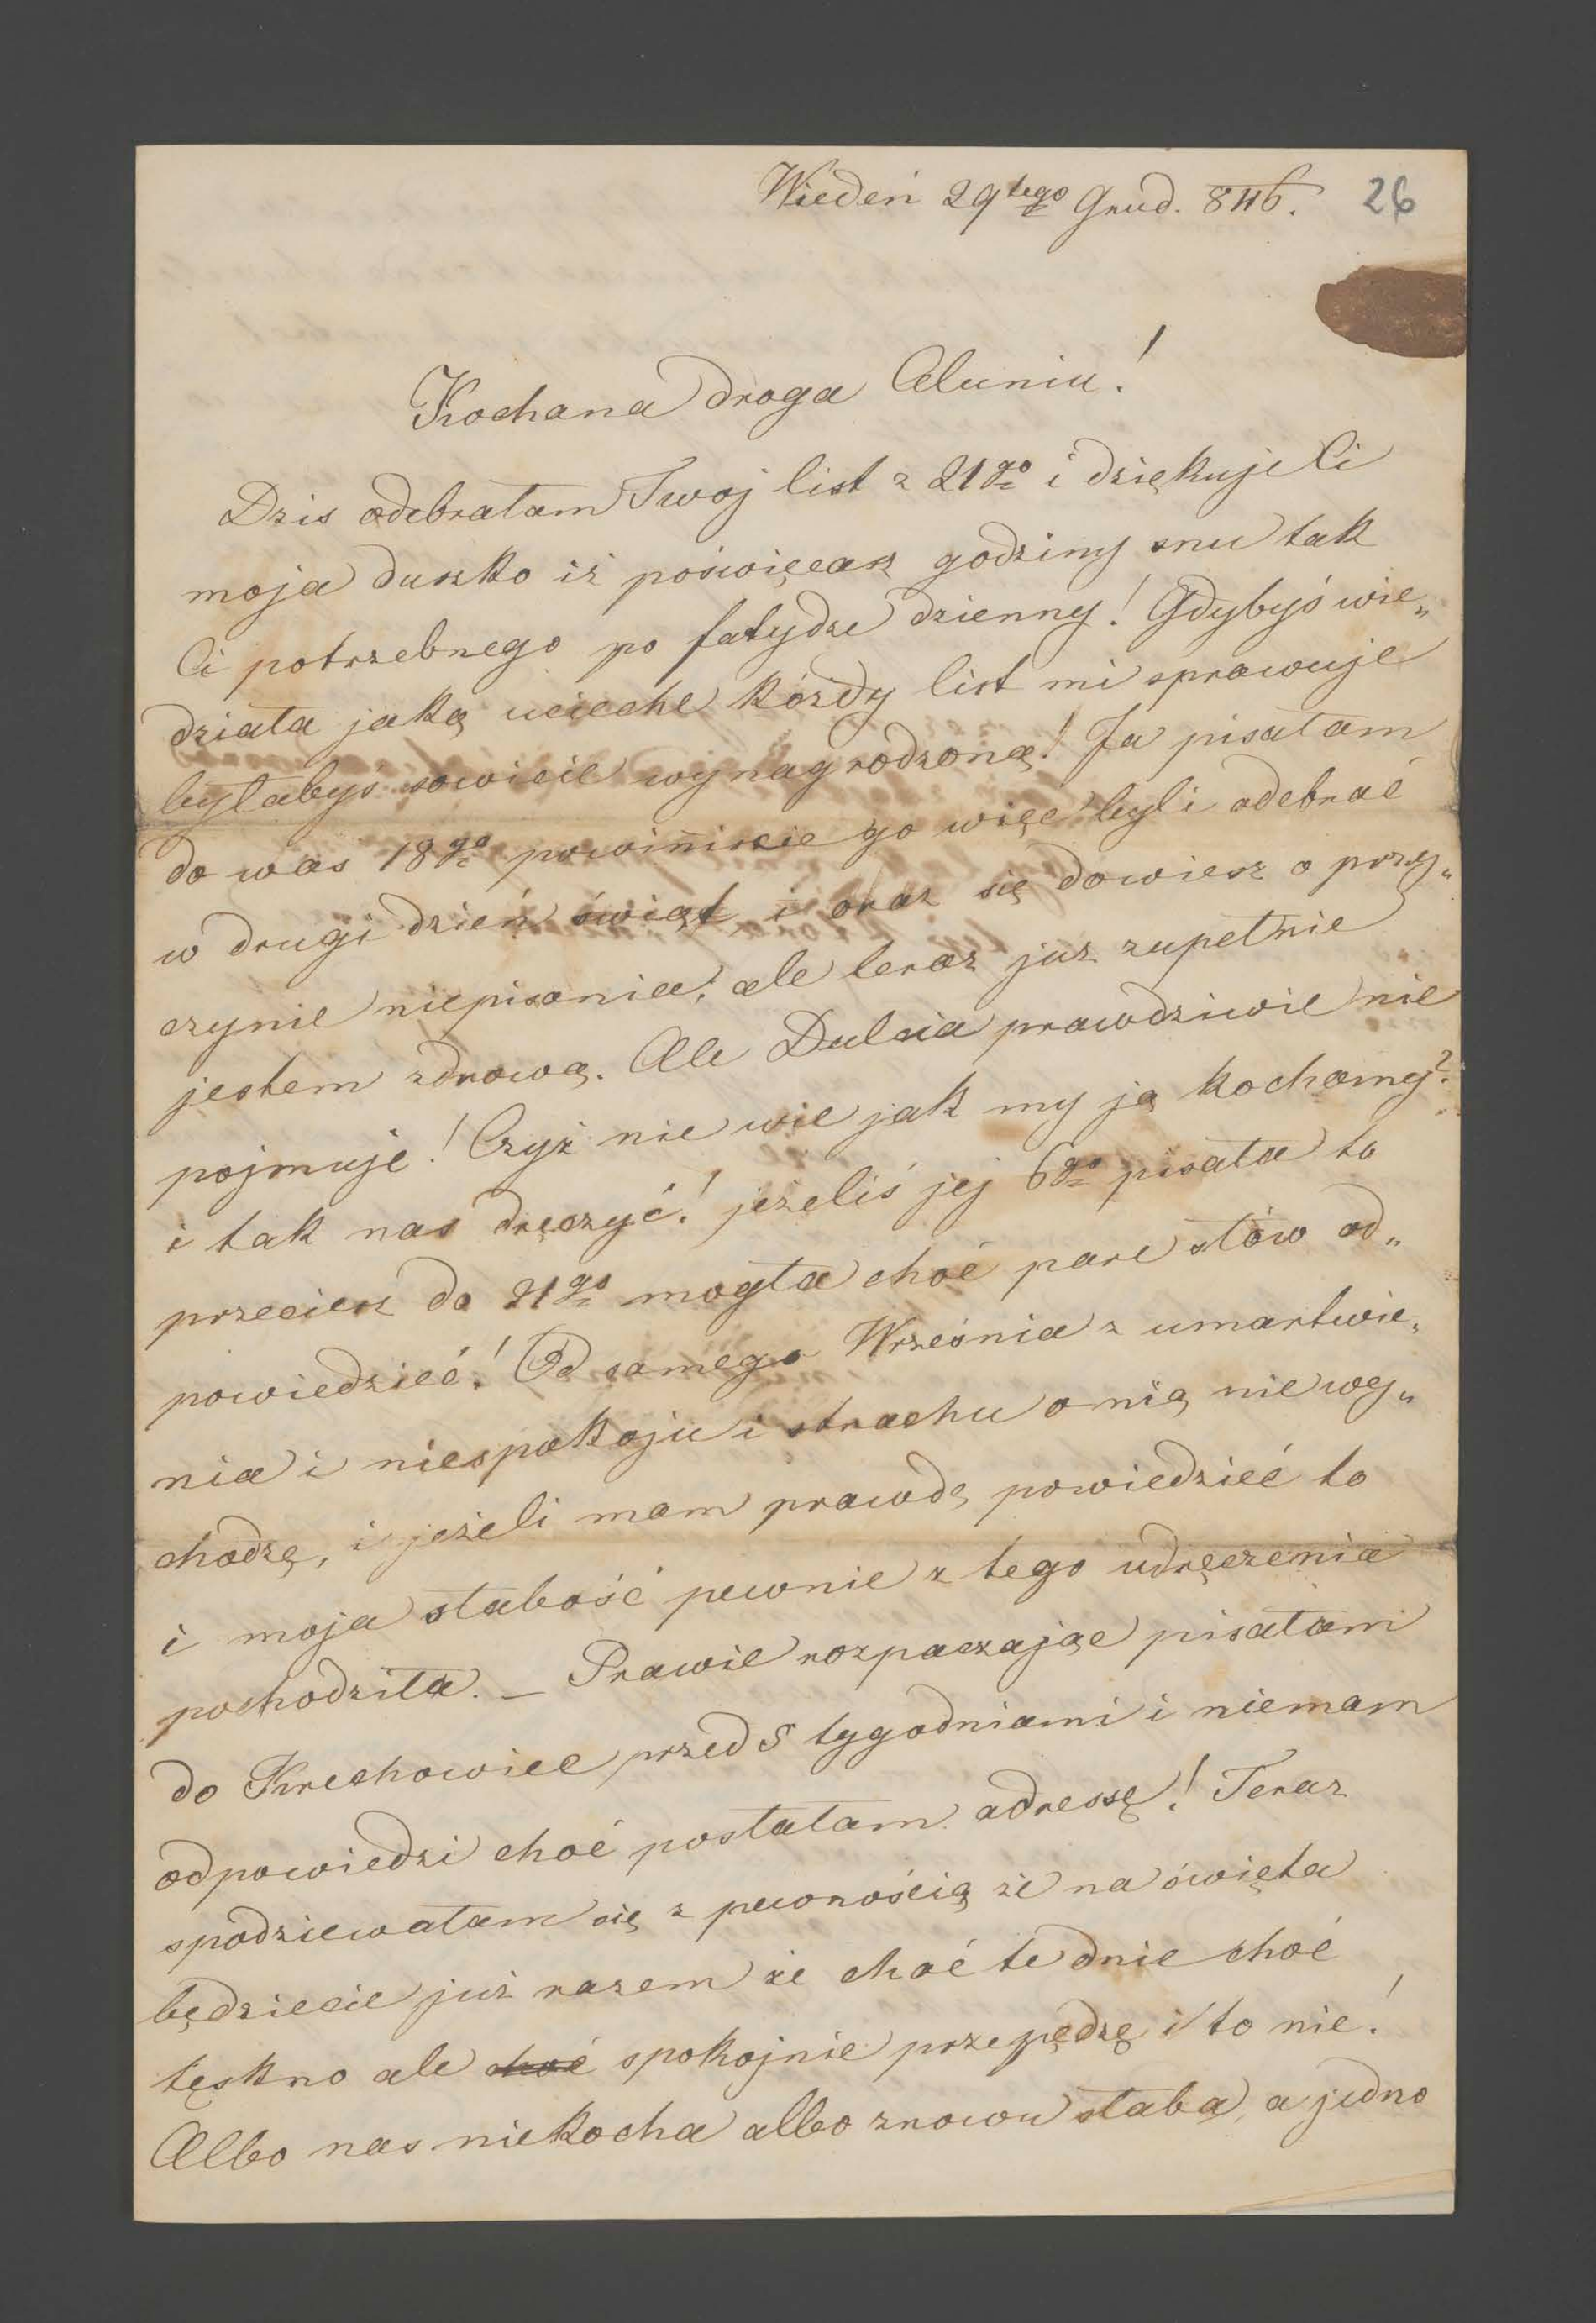 Wiedeń 29tego Grud. 846. 26
Kochana droga Aluniu!
Dzis odebrałam Twoj list z 21go i dziękuje Ci
moja duszko iż poświęcasz godziny snu tak
Ci potrzebnego po fatydze dzienny! Gdybyś wie„
działa jaką uciechе każdy list mi sprawuje
byłabyś sowicie wynagrodzoną! Ja pisałam
do was 18go powiniście go więc byli odebrać
w drugi dzień świąt i oraz się dowiesz o przy„
czynie niepisania, ale teraz już zupełnie
jestem zdrową. Ale Dulcia prawdziwie nie
pojmuje! Czyż nie wie jak my ją kochamy?
i tak nas dręczyć! jeżeliś jej 6go pisała to
przecież do 21go mogła choć pare słów od„
powiedzieć! Od samego Września z umartwie„
nia i niespokoju i strachu o nią nie wy„
chodzę, i jeżeli mam prawdę powiedzieć to
i moja słabość pewnie z tego udręczenia
pochodziła. – Prawie rozpaczając pisałam
do Krechowiec przed 5 tygodniami i niemam
odpowiedzi choć posłałam adressę! Teraz
spodziewałam się z pewnością że na święta
będziecie już razem że choć te dnie choć
tęskno ale choć spokojnie przepędzę i to nie!
Albo nas niekocha albo znowu słaba, a jedno